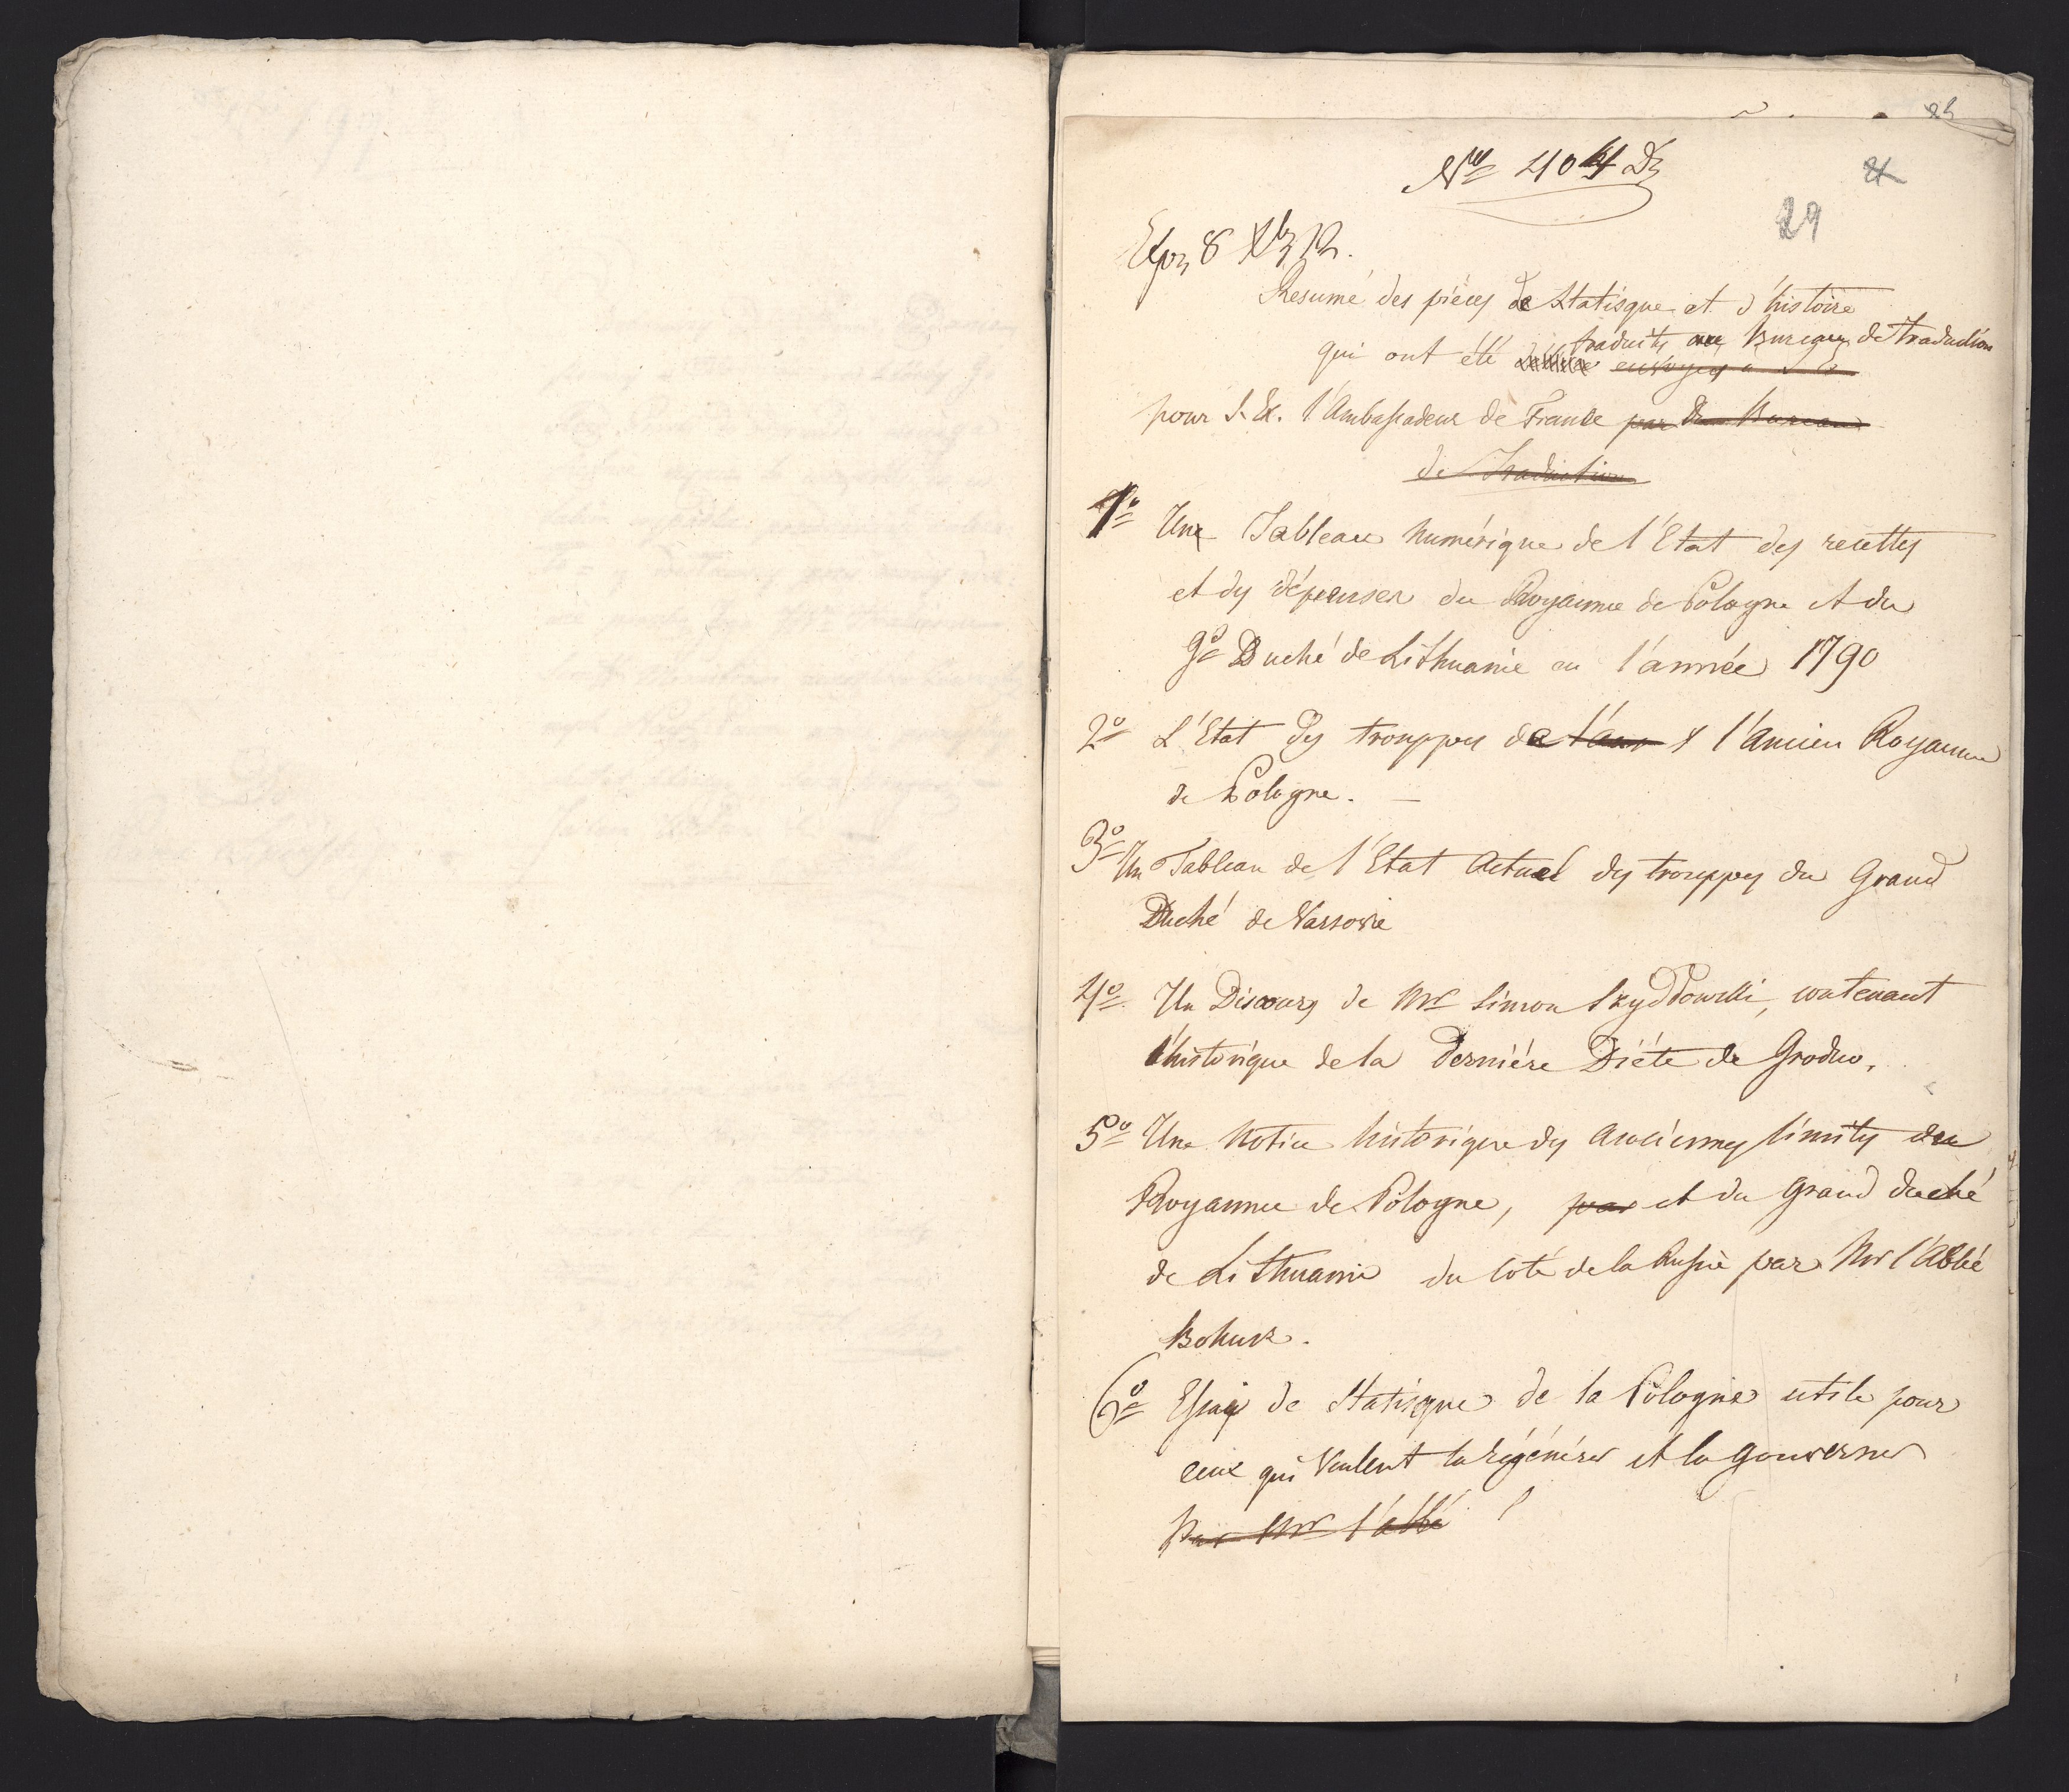 29
Nro 404 Dz
Exp. 8 Xb 12.
Resumé des piéces de Statisque et d'histoire
traduits au Bureau de Traduction
qui ont été envoyés a S E
pour S. Ex. l'Ambassadeur de France par Du Bureau
de Traduction
1o Une Tableau numérique de l'Etat des recettes
et des dépenses du Royaume de Pologne et du
gd Duché de Lithuanie en l'année 1790
2o L'Etat des trouppes de l'anc l'Ancien Royaume
de Pologne. —
3o Un Tableau de l'Etat Actuel des trouppes du Grand
Duché de Varsovie
4o Un Discours de Mr Simon Szydłowski, contenant
l'historique de la Derniére Diéte de Grodno.
5o Une Notice historique des anciennes limites du
Royaume de Pologne, par et du Grand duché
de Lithuanie du coté de la Russie par Mr l'Abbé
Bohusz.
6o Essay de Statisque de la Pologne utile pour
ceux qui veulent la régénérer et la gouverner
Par Mr l'abbé